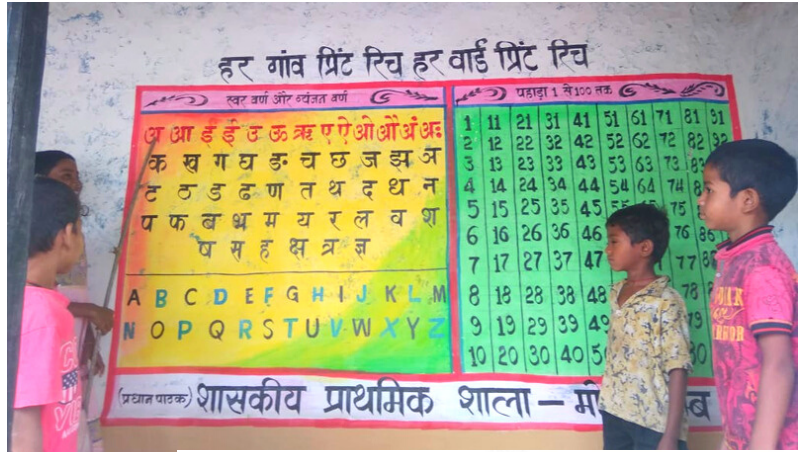 हर गांव प्रिंट रिच हर वार्ड प्रिंट रिच
स्वर वर्ण और व्यंजन वर्ण
अ आ इ ई उ ऊ ऋ ए ऐ ओ औ अं अः
क ख ग घ ङ च छ ज झ ञ
ट ठ ड ढ ण त थ द ध न
प फ ब भ म य र ल व श
ष स ह क्ष त्र ज्ञ
A B C D E F G H I J K L M
N O P Q R S T U V W X Y Z
पहाड़ा 1 से 100 तक
1 11 21 31 41 51 61 71 81 91
2 12 22 32 42 52 62 72 82 92
3 13 23 33 43 53 63 73
4 14 24 34 44 54 64 74
5 15 25 35 45 75
6 16 26 36 46 76
7 17 27 37 47 77
8 18 28 38 48 78
9 19 29 39 49
10 20 30 40
(प्रधान पाठक) शासकीय प्राथमिक शाला –